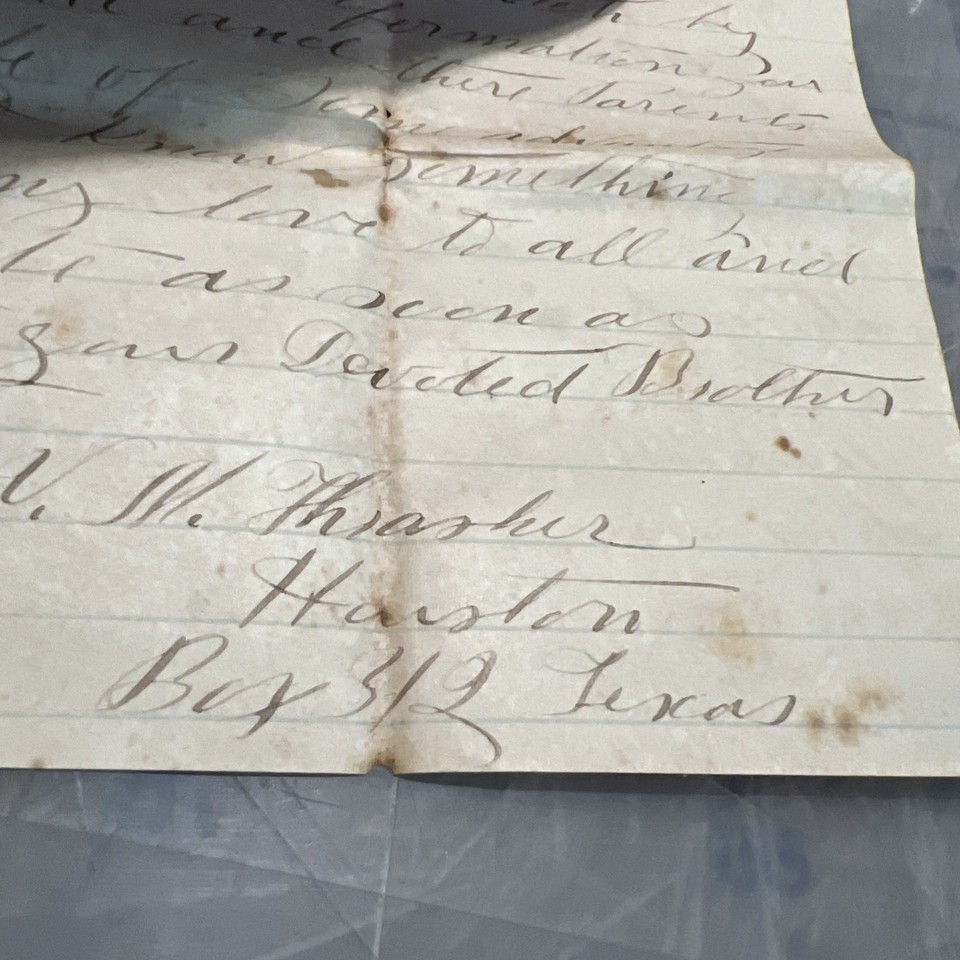 by
and formation you
of there Parents
of Some
know Something
my love to all and
as soon as
your Devoted Brother
V. M. Thrasher
Houston
Box 312 Texas